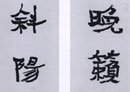 晚籟
斜陽